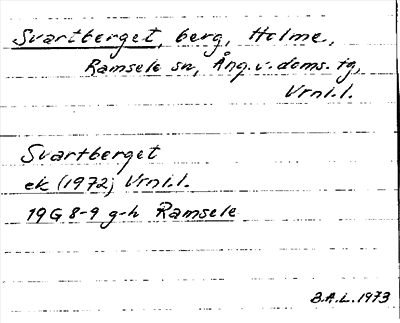 Svartberget, berg, Holme,
Ramsele sn, Ång. v. doms. tg,
Vrnl.l.
Svartberget
ek (1972) Vrnl.l.
19G 8-9 g-h Ramsele
B.A.L. 1973